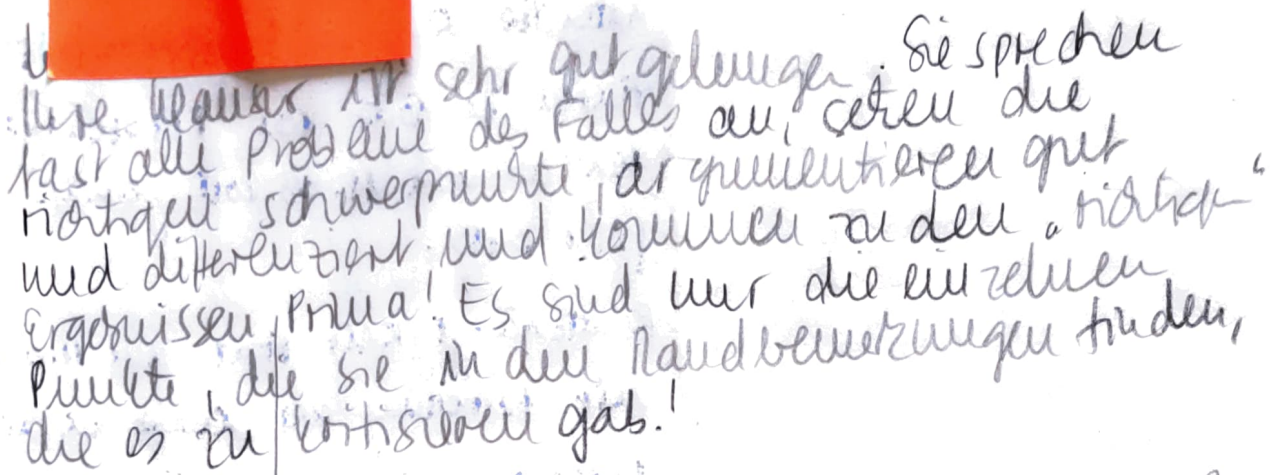 Ihre Klausur ist sehr gut gelungen. Sie sprechen
fast alle Probleme des Falles an, setzen die
richtigen Schwerpunkte, argumentieren gut
und differenziert und kommen zu den „richtigen“
Ergebnissen. Prima! Es sind nur die einzelnen
Punkte, die sie in den Randbemerkungen finden,
die es zu kritisieren gab!